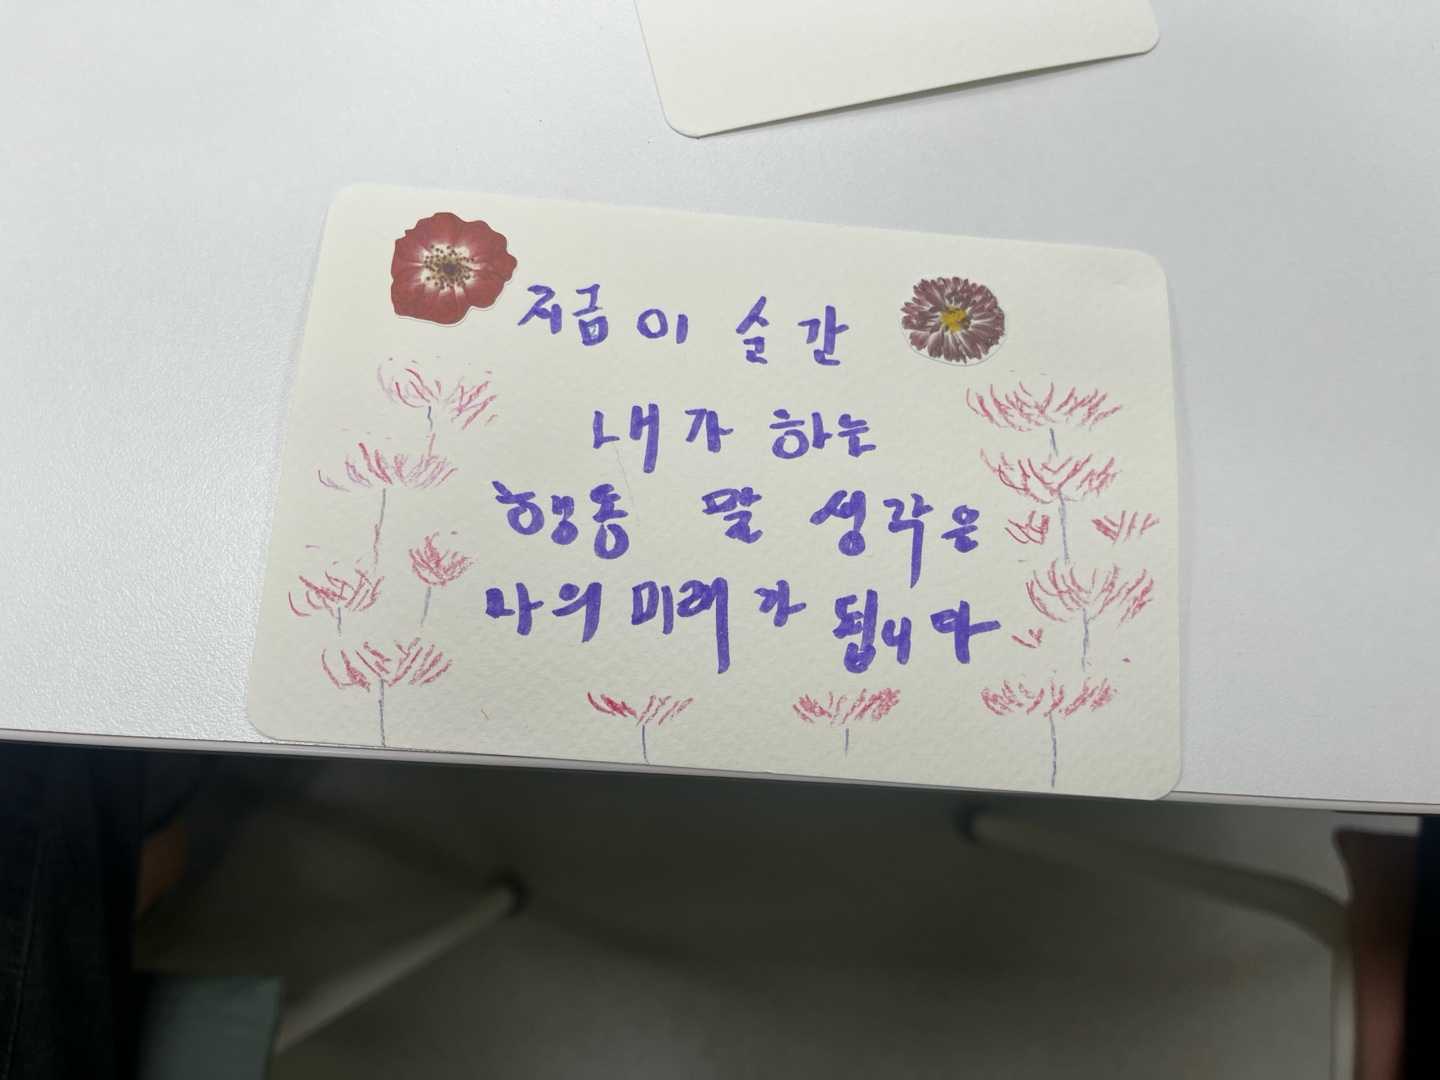 지금 이 순간
내가 하는
행동 말 생각은
나의 미래가 됩니다